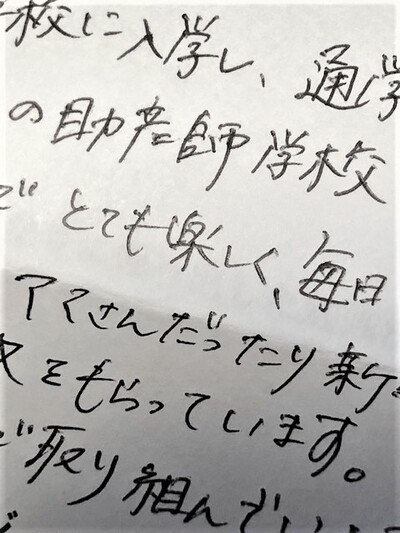 校に入学し、通学
の助産師学校
とても楽しく、毎日
アマさんだったり新
をもらっています。
取り組んでい